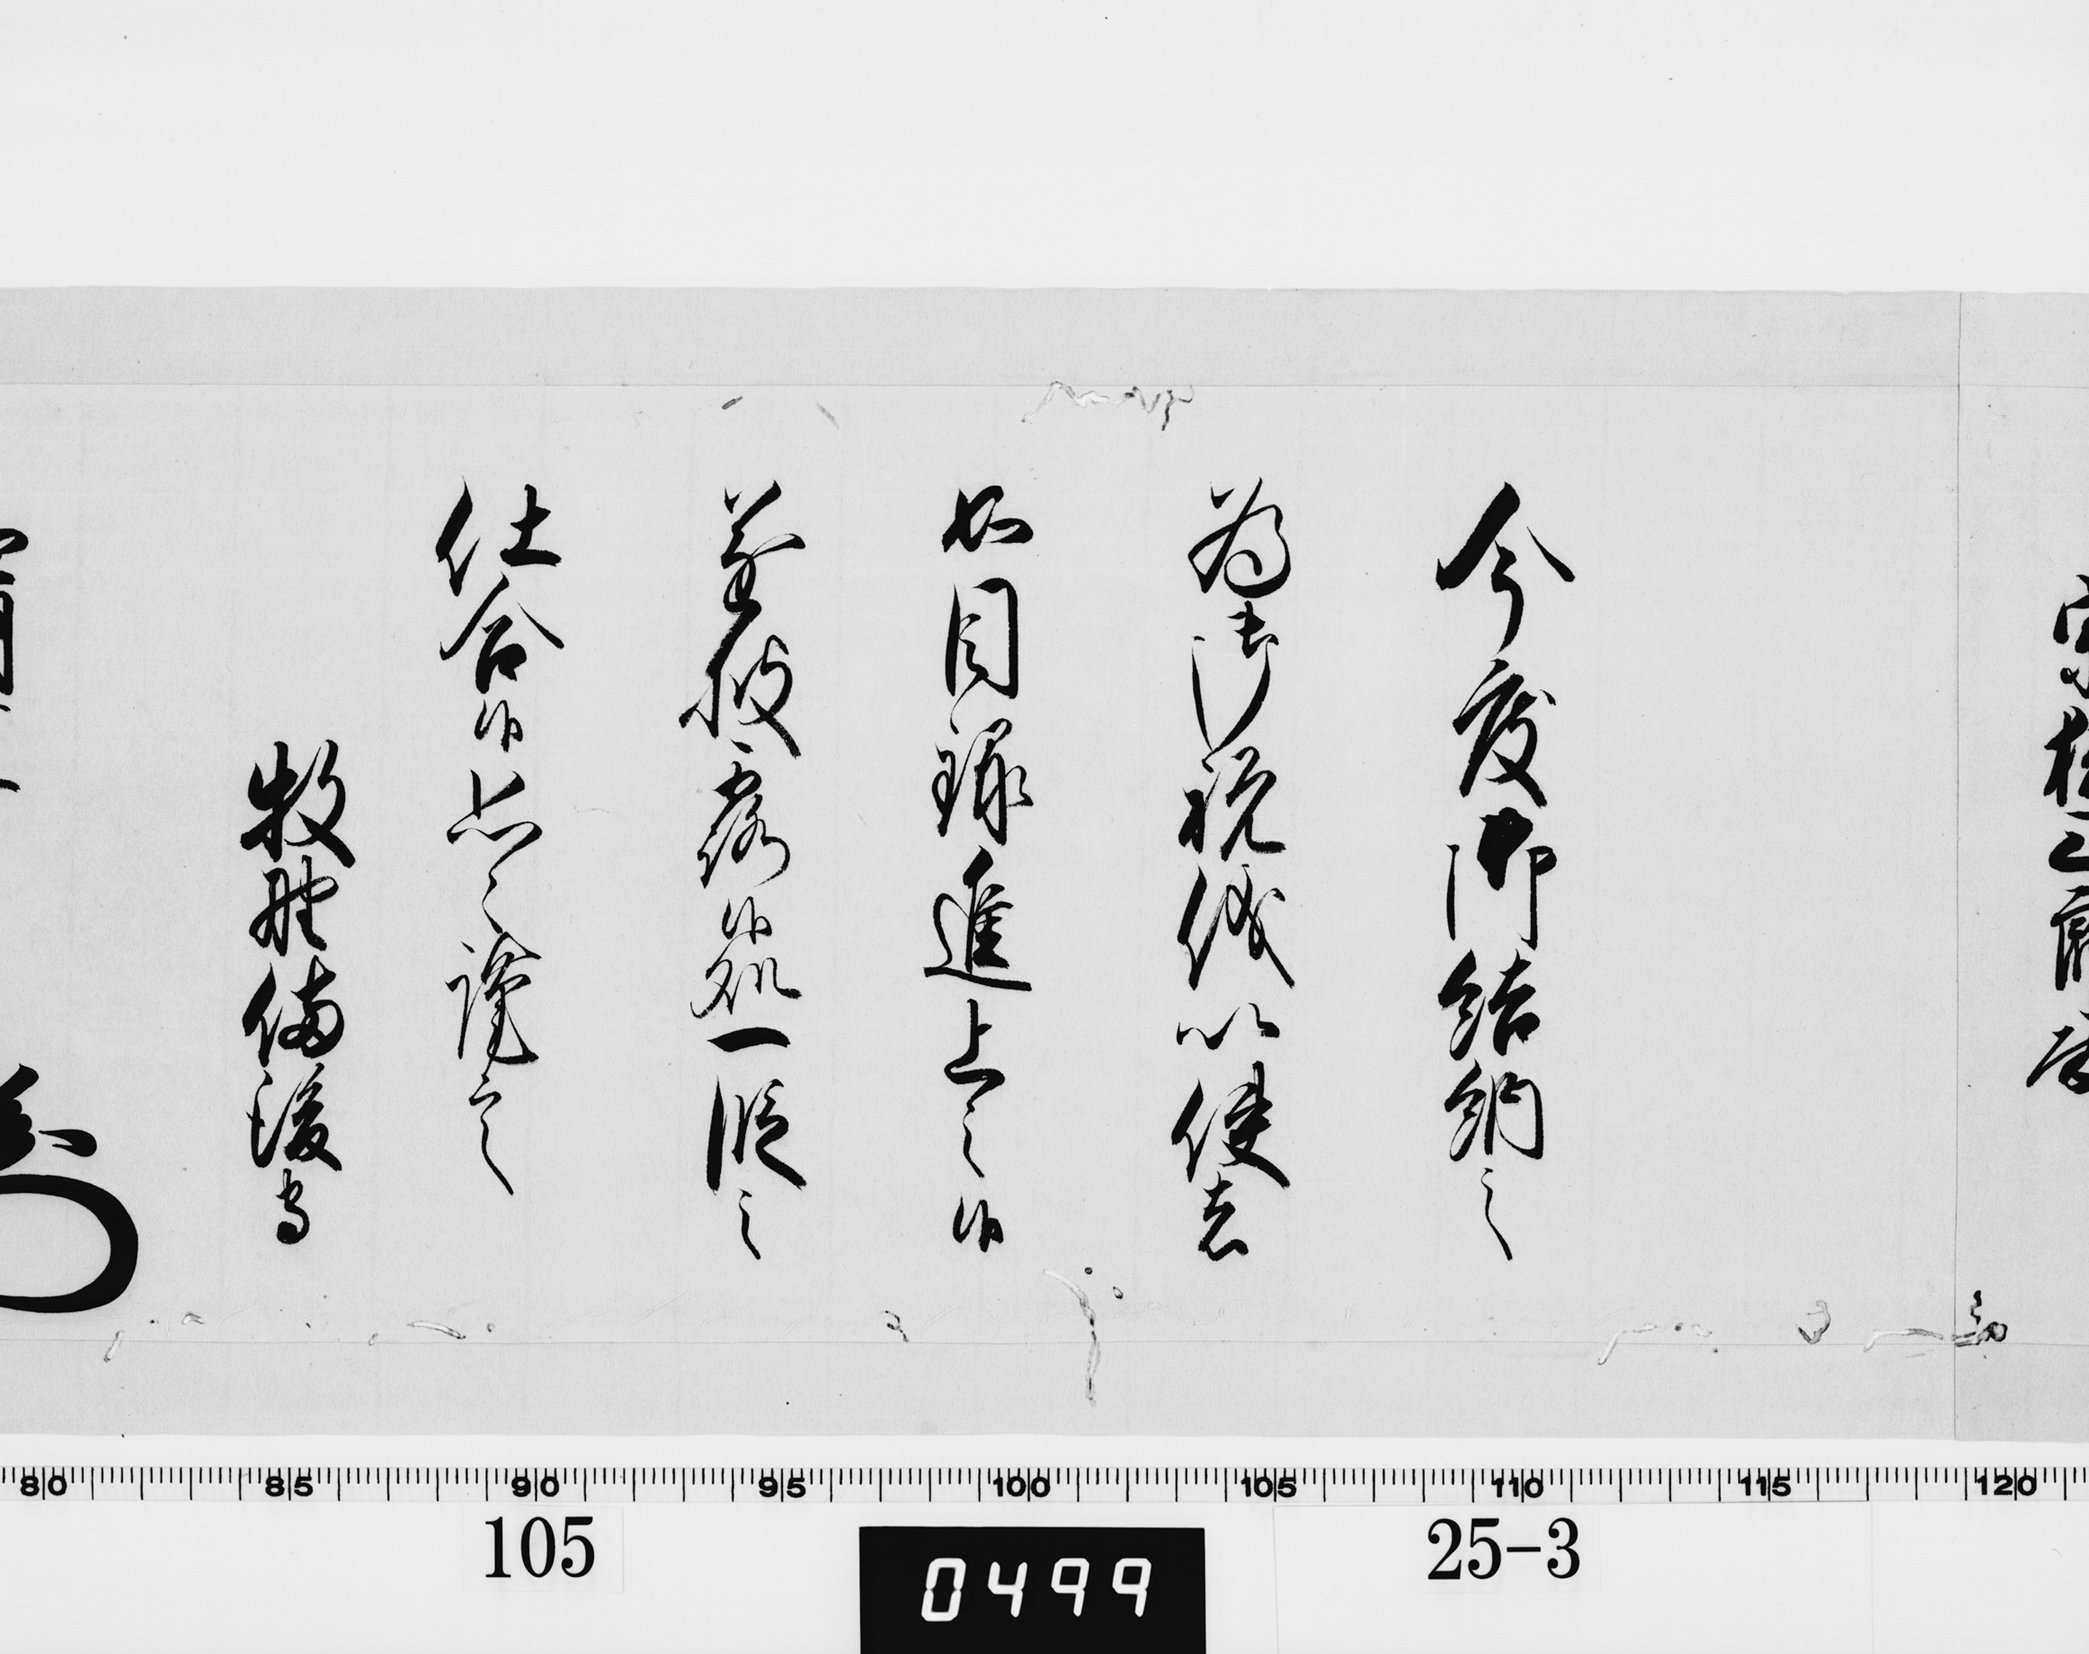 今度御結納之
為御祝儀以使者
如目録進上之候
遂披露候処一段之
仕合候恐々謹言
牧野備後守
80 85 90 95 100 105 110 115 120
105
0499
25-3